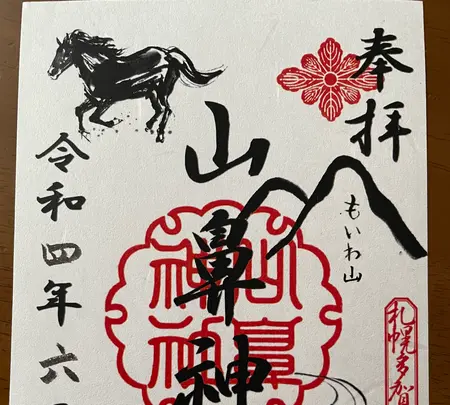 奉拝
もいわ山
札幌多賀
山鼻神
山鼻
神社
令和四年六